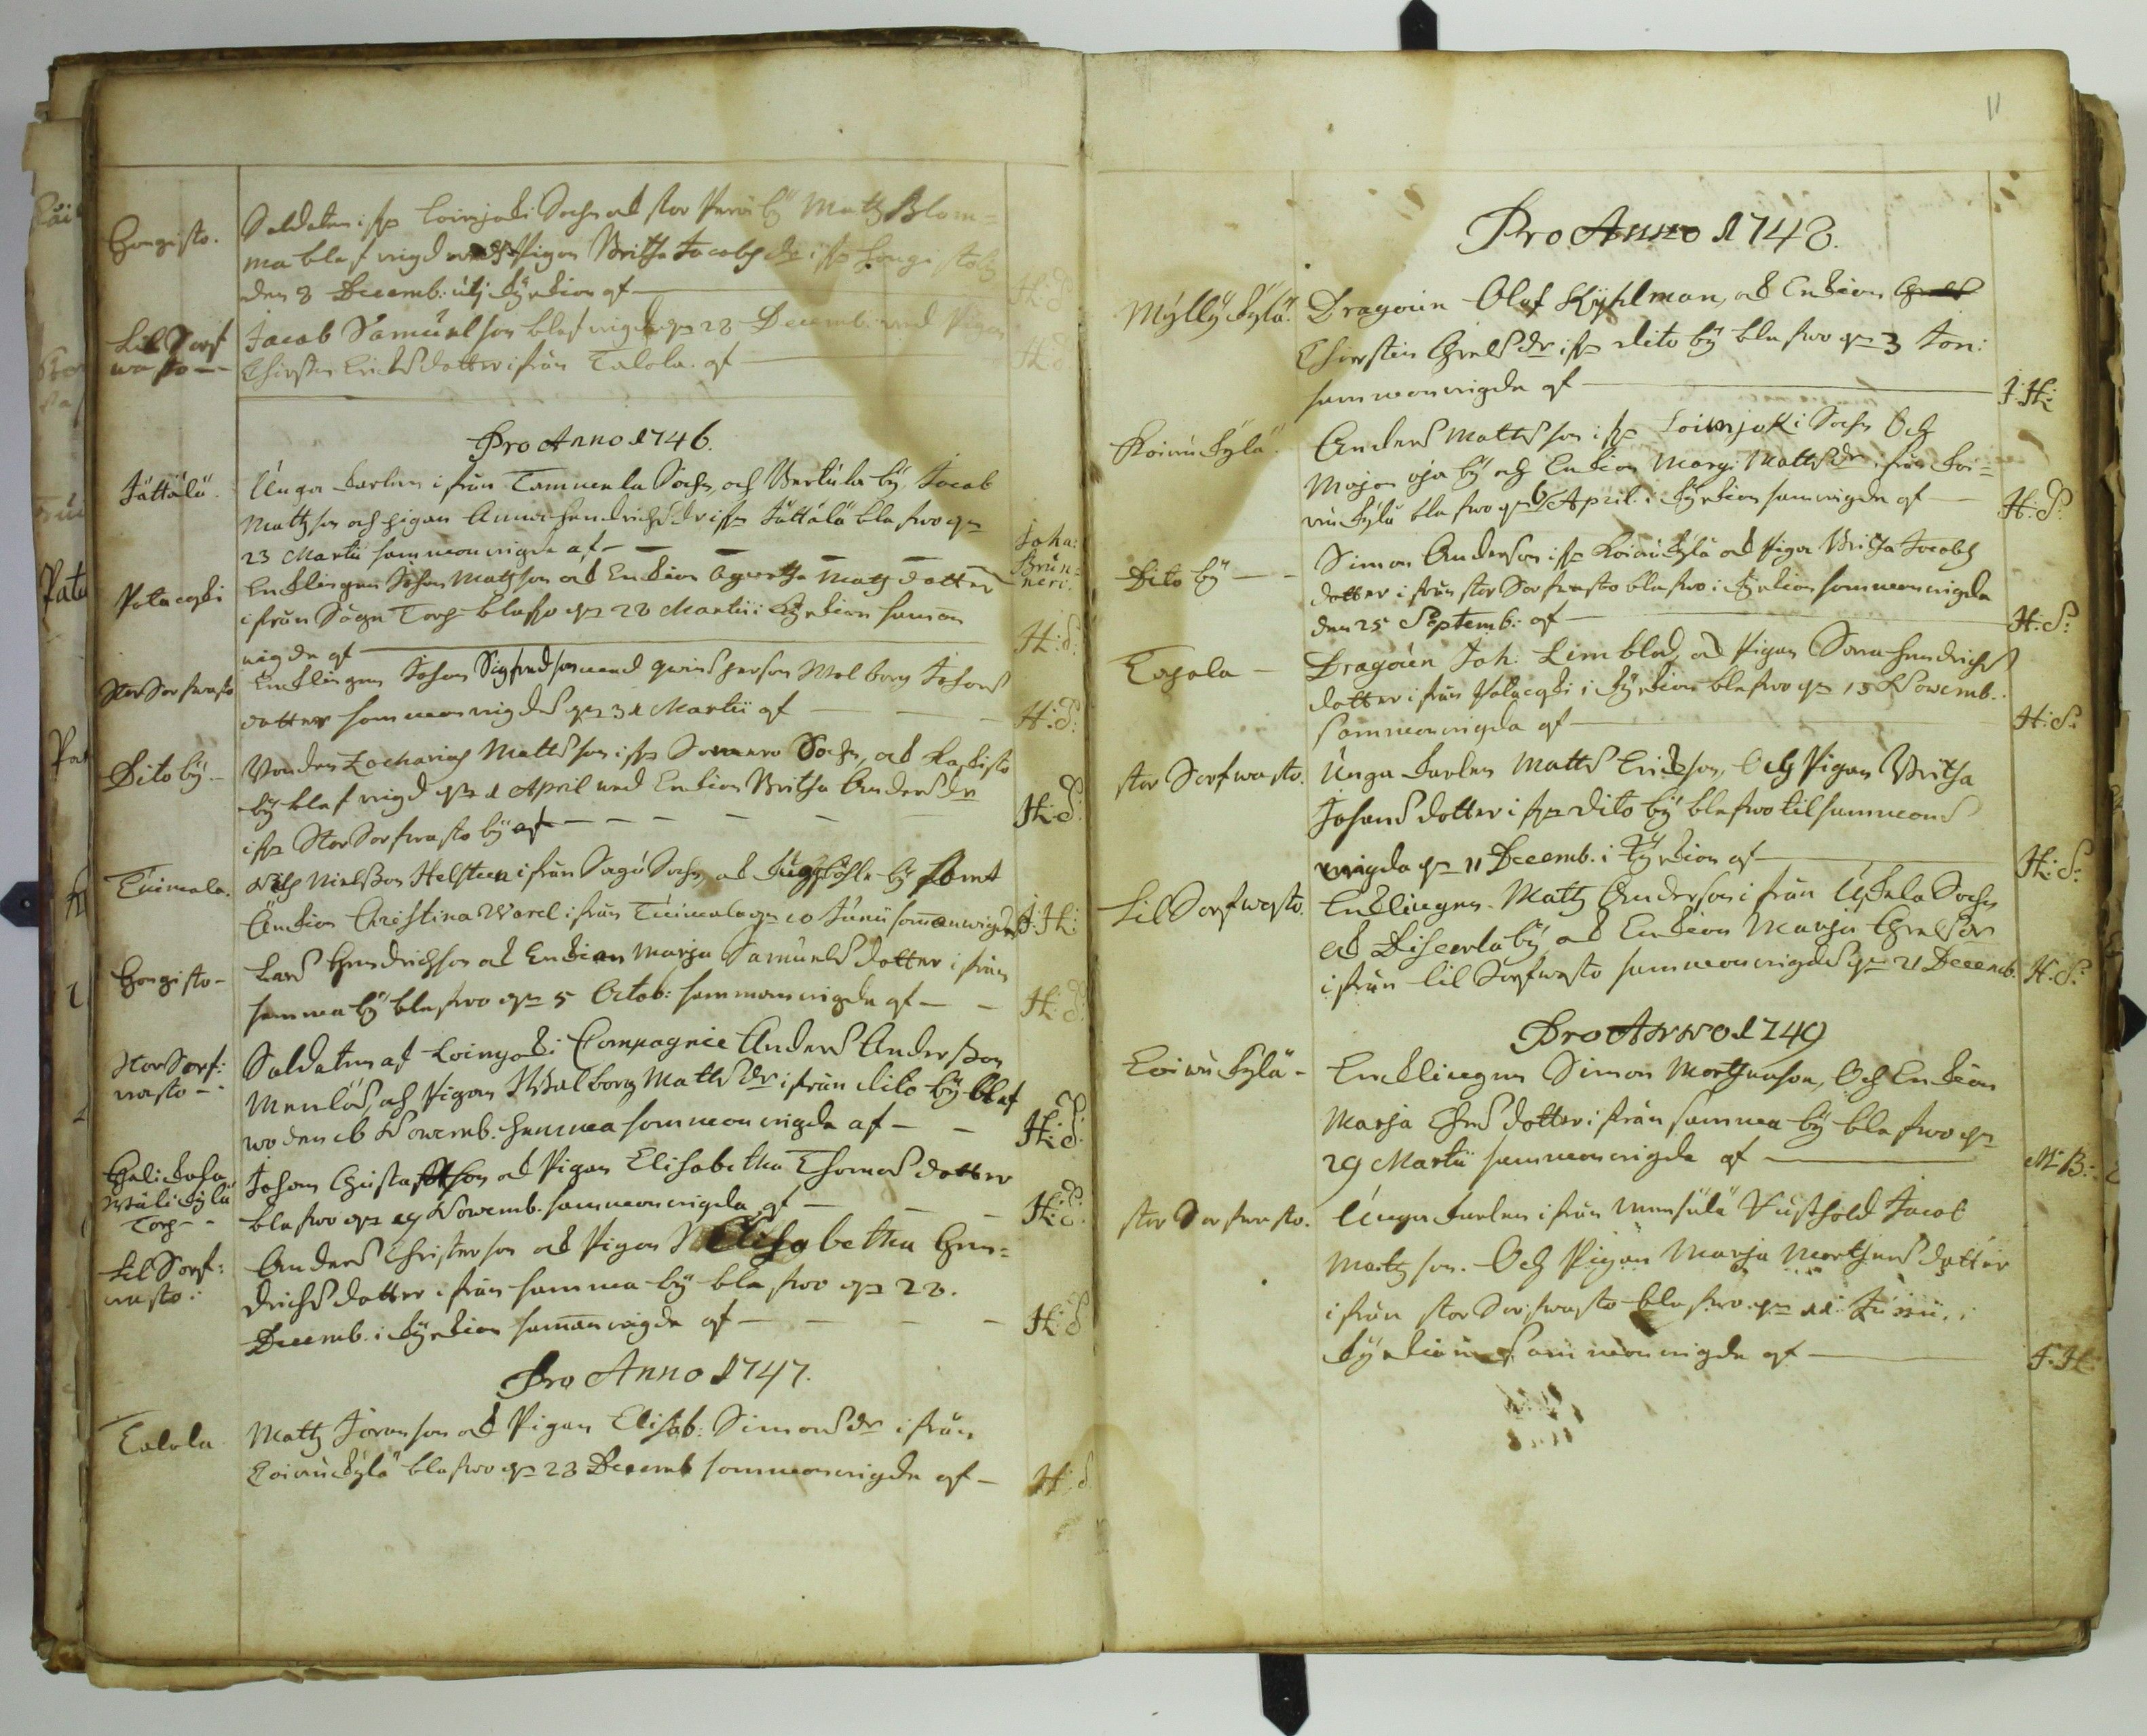 Hongisto. Soldaten ifr Loimjoki Sochn och stor Perä by Matz Blom=
ma blef vigd med Pigan Britha Jacobsdr ifr Hongisto by
den 8 Decemb: uti kyrkion af — H: S:
Lil Sorf Jacob Samuelson blef vigd d 28 Decemb. med Pigan
wasto — Chirstin Erichsdotter ifrån Talola. af — H: S:
Pro Anno 1746.
Jättälä. Unga karlen ifrån Tammela Sochn, och Mertula by, Jacob
Mattzson och pigan Anna Hendrichsdr ifr Jättälä blefwo d
23 Martii samman vigde af — Joha: Brun=nero.
Potacoski Encklingen Johan Matzson och Enckian Agnetha Matz dotter
ifrån Sågu Torp blefwo d 28 Martii i Kyrkian samman
vigde af — H: S:
Stor Sorfwasto Encklingen Johan Sigfredson med qwins person Walborg Johans
dotter samman vigdes d 31 Martii af — H: S:
Dito by — Bonden Zacharias Mattsson ifr Somero Sochn, och Kaskisto
by blef vigd d 1 April med Enckian Britha Andersdr
ifr Stor Sorfwasto by af — H: S:
Tuimala. Nils Nielsson Helsteen ifrån Sagu Sochn, och by samt
Änckian Christina Warel ifrån Tuimala d 10 Junii sammanvigde J: H:
Hongisto — Lars Hendrichson och Enckian Marja Samuels dotter ifrån
samma by blefwo d 5 Octob: samman vigde af — H: S:
Stor Sorf: Soldaten af Loimjoki Compagnie Anders Andersson
wasto — Menlös, och Pigan Walborg Mattsdr ifrån dito by blef
wo den 16 Nowemb. hemma samman vigde af — H: S:
Johan Gustafson och Pigan Elisabetha Thomas dotter
Torp — blefwo d 19 Nowemb. samman vigde af — H: S:
Lil Sorf: Anders Christerson och Pigan Elisabetha Hen=
wasto: drichs dotter ifrån samma by blefwo d 28.
Decemb. i kyrkian samman vigde af — H: S
Pro Anno 1747.
Talola Matz Jöranson och Pigan Elisab: Simonsdr ifrån
Koiwukylä blefwo d 23 Decemb samman vigde af — H: S
11
Pro Anno 1748.
Myllykylä. Dragoun Olof Kyhlman, och Enckian
Chirstin Grelsdr ifr dito by blefwo d 3 Jan:
samman vigde af — J: H:
Koiwukylä. Anders Mattsson ifr Loimjoki Sochn Och
Majan oja by och Enckian Marg: Mattsdr ifrån Koi=
wukylä blefwo d 6 April i kyrkian sam vigde af — H: S:
Dito by — Simon Anderson ifr Koiwukylä och Pigan Britha Jacobs
dotter ifrån stor Sorfwasto blefwo i kyrkian samman vigde
den 25 Septemb: af — H: S:
Topola — Dragoun Joh. Limblad, och Pigan Sara Hendrichs
dotter ifrån Potacoski i kyrkian blefwo d 13 Nowemb.
samman vigde af — H: S:
stor Sorfwasto. Unga karlen Matts Erickson, Och Pigan Britha
Johans dotter ifr dito by blefwo tilsammans
vigde d 11 Decemb. i kyrkian af — H: S:
Lil Sorfwasto. Encklingen Matz Anderson ifrån Uskela Sochn
och by och Enckian Marja Grelsdr
ifrån lil Sorfwasto samman vigdes d 21 Decemb. H: S:
Pro Anno 1749
Koiwukylä — Encklingen Simon Morthenson, Och Enckian
Marja dotter ifrån samma by blefwo d
29 Martii samman vigde af — M: B:
stor Sorfwasto. Unga karlen ifrån Rusthold Jacob
Matzson. Och Pigan Marja Morthens dotter
ifrån stor Sorfwasto blefwo d 11 Junii. i
kyrkian samman vigde af — J: H: